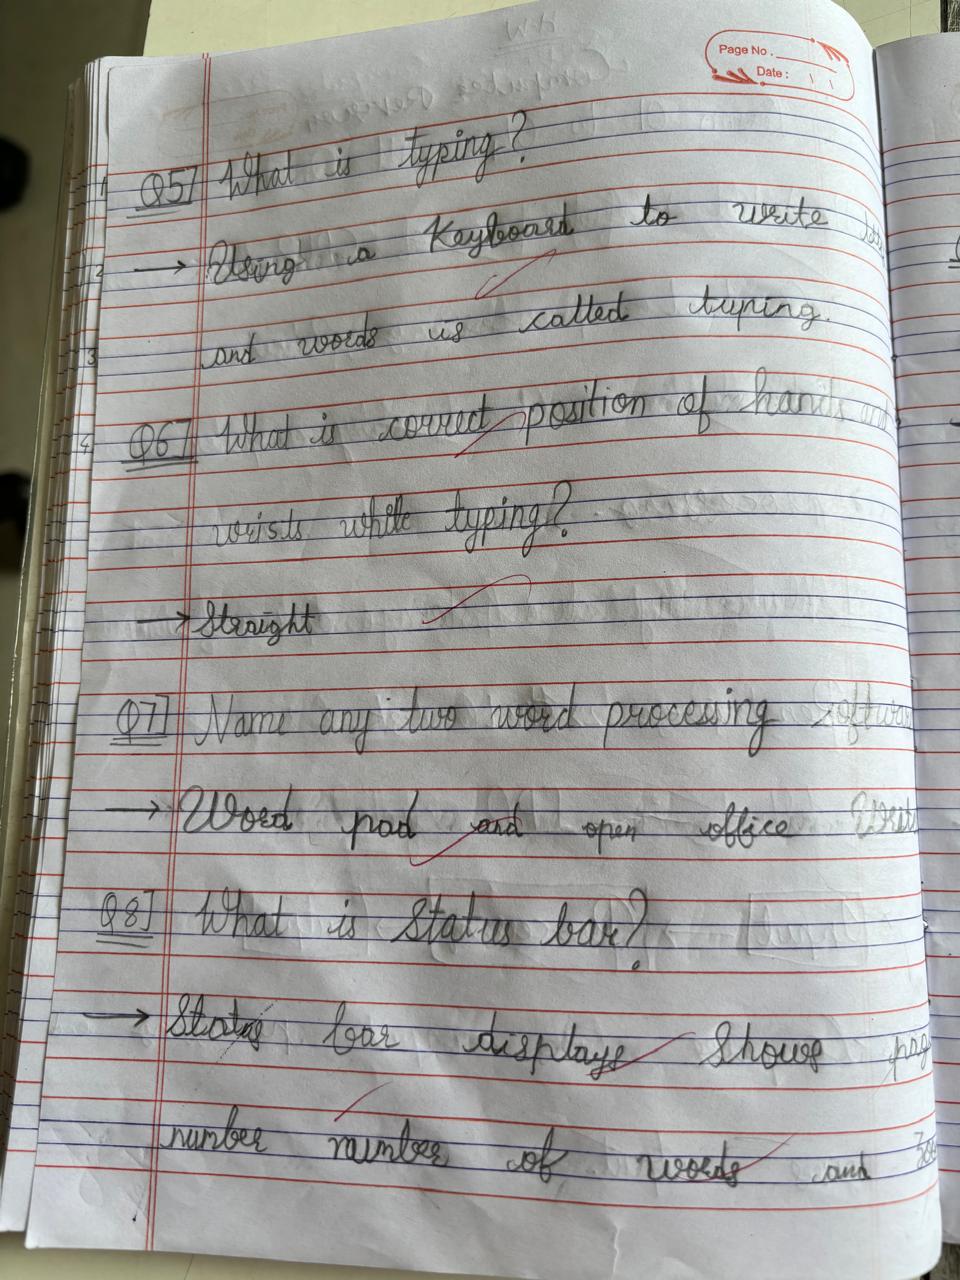 Page No.
Date:
Q5] What is typing?
→ Using a Keyboard to write
and words is called typing.
Q6] What is correct position of hands
wrists while typing?
→ Straight
Q7] Name any two word processing
→ Word pad and open office
Q8] What is Status bar?
→ Status bar displays Shows
number number of words and